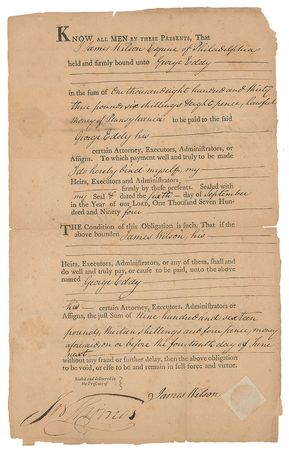 KNOW ALL MEN BY THESE PRESENTS, That
I James Wilson Esquire of Philadelphia
held and firmly bound unto George Eddy
in the sum of One thousand eight hundred and thirty
three pounds six shillings & eight pence, lawful
money of Pennsylvania to be paid to the said
George Eddy his
certain Attorney, Executors, Administrators, or
Assigns. To which payment well and truly to be made
I do hereby bind myself, my
Heirs, Executors and Administrators
firmly by these presents. Sealed with
my Seal & dated the day of September
in the Year of our LORD, One Thousand Seven Hun-
dred and Ninety four
THE Condition of this Obligation is such, That if the
above bounden James Wilson, his
Heirs, Executors, Administrators, or any of them, shall and
do well and truly pay, or cause to be paid, unto the above
named George Eddy
his certain Attorney, Executors, Administrators or
Assigns, the just Sum of Nine hundred and sixteen
pounds, thirteen shillings and four pence, money
aforesaid, on or before the fourteenth day of June
next
without any fraud or further delay, then the above obligation
to be void, or else to be and remain in full force and virtue.
Sealed and delivered in
the Presence of
James Wilson